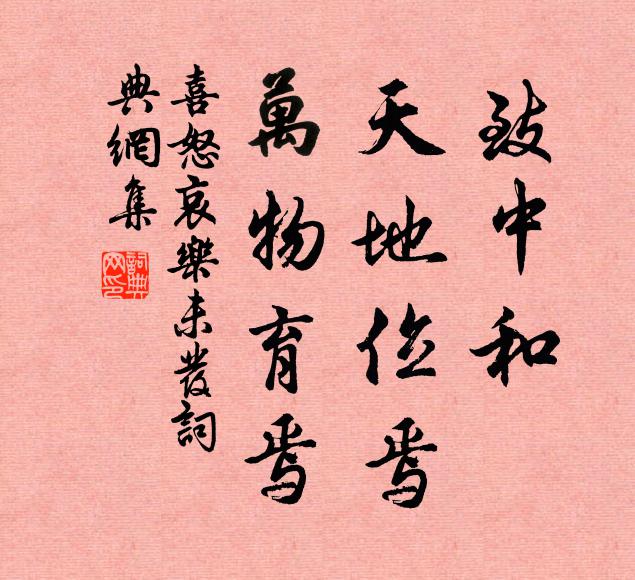 致中和
天地位焉
萬物育焉
喜怒哀樂未發詞
典網集
詞典
网印